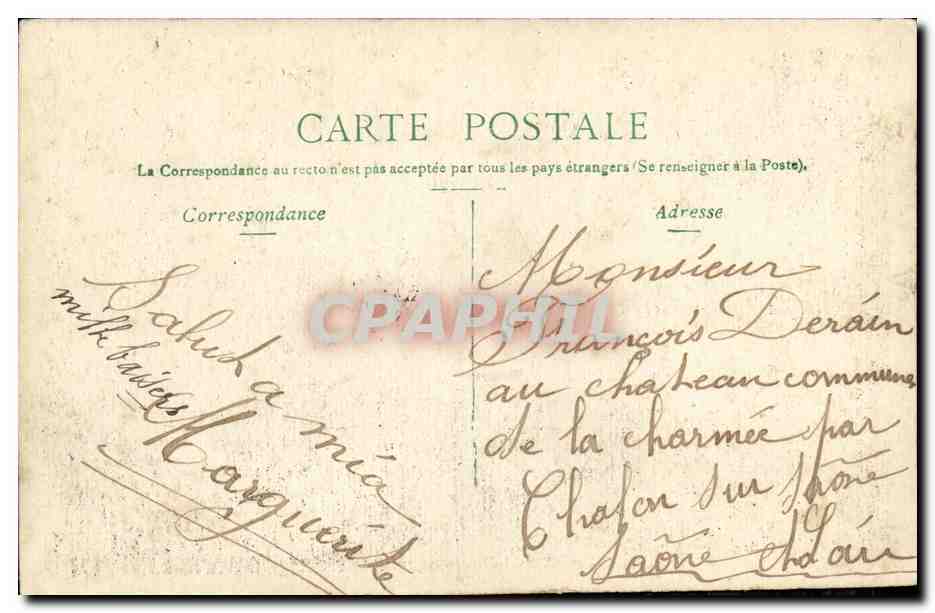 CARTE POSTALE
La Correspondance au recto n'est pas acceptée par tous les pays étrangers (Se renseigner à la Poste).
Correspondance
Adresse
Salut a mia
Marguerite
mille baisers
Monsieur
François Derain
au chateau commune
de la charmée par
Chalon sur Saône
Saône et Loir
CPAPHIL